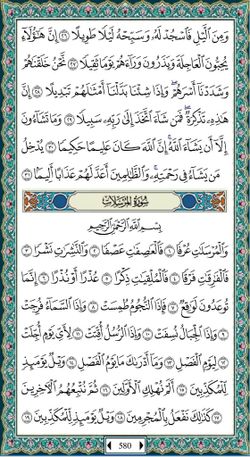 وَمِنَ ٱلَّيْلِ فَٱسْجُدْ لَهُۥ وَسَبِّحْهُ لَيْلًا طَوِيلًا ٢٦ إِنَّ هَٰٓؤُلَآءِ
يُحِبُّونَ ٱلْعَاجِلَةَ وَيَذَرُونَ وَرَآءَهُمْ يَوْمًا ثَقِيلًا ٢٧ نَّحْنُ خَلَقْنَٰهُمْ
وَشَدَدْنَآ أَسْرَهُمْ ۖ وَإِذَا شِئْنَا بَدَّلْنَآ أَمْثَٰلَهُمْ تَبْدِيلًا ٢٨ إِنَّ
هَٰذِهِۦ تَذْكِرَةٌ ۖ فَمَن شَآءَ ٱتَّخَذَ إِلَىٰ رَبِّهِۦ سَبِيلًا ٢٩ وَمَا تَشَآءُونَ
إِلَّآ أَن يَشَآءَ ٱللَّهُ ۚ إِنَّ ٱللَّهَ كَانَ عَلِيمًا حَكِيمًا ٣٠ يُدْخِلُ
مَن يَشَآءُ فِى رَحْمَتِهِۦ ۚ وَٱلظَّٰلِمِينَ أَعَدَّ لَهُمْ عَذَابًا أَلِيمًۢا ٣١
سُورَةُ المُرْسَلَات
بِسْمِ ٱللَّهِ ٱلرَّحْمَٰنِ ٱلرَّحِيمِ
وَٱلْمُرْسَلَٰتِ عُرْفًا ١ فَٱلْعَٰصِفَٰتِ عَصْفًا ٢ وَٱلنَّٰشِرَٰتِ نَشْرًا ٣
فَٱلْفَٰرِقَٰتِ فَرْقًا ٤ فَٱلْمُلْقِيَٰتِ ذِكْرًا ٥ عُذْرًا أَوْ نُذْرًا ٦ إِنَّمَا
تُوعَدُونَ لَوَٰقِعٌ ٧ فَإِذَا ٱلنُّجُومُ طُمِسَتْ ٨ وَإِذَا ٱلسَّمَآءُ فُرِجَتْ
٩ وَإِذَا ٱلْجِبَالُ نُسِفَتْ ١٠ وَإِذَا ٱلرُّسُلُ أُقِّتَتْ ١١ لِأَىِّ يَوْمٍ أُجِّلَتْ
١٢ لِيَوْمِ ٱلْفَصْلِ ١٣ وَمَآ أَدْرَىٰكَ مَا يَوْمُ ٱلْفَصْلِ ١٤ وَيْلٌ يَوْمَئِذٍ
لِّلْمُكَذِّبِينَ ١٥ أَلَمْ نُهْلِكِ ٱلْأَوَّلِينَ ١٦ ثُمَّ نُتْبِعُهُمُ ٱلْءَاخِرِينَ
١٧ كَذَٰلِكَ نَفْعَلُ بِٱلْمُجْرِمِينَ ١٨ وَيْلٌ يَوْمَئِذٍ لِّلْمُكَذِّبِينَ ١٩
580